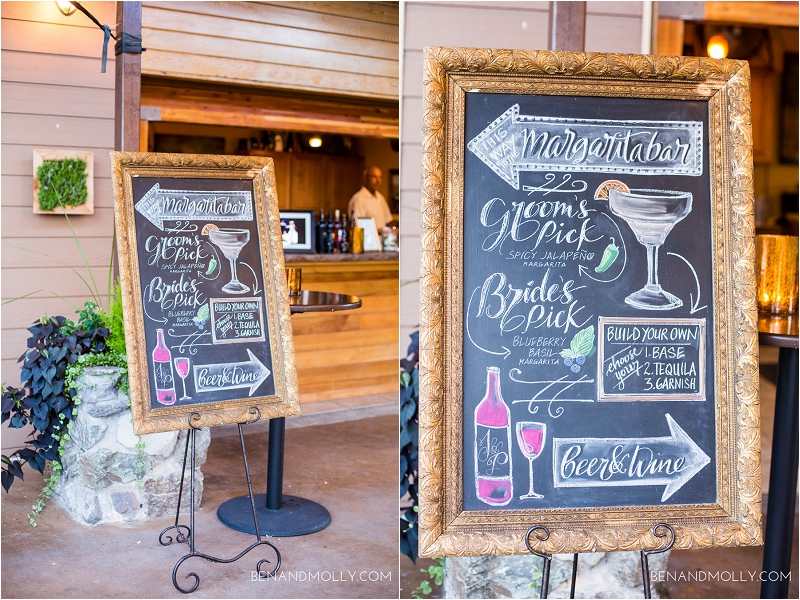 THIS WAY TO
Margarita bar
Groom's
Pick
SPICY JALAPEÑO
MARGARITA
Bride's
Pick
BLUEBERRY
BASIL
MARGARITA
BUILD YOUR OWN
choose
your
1. BASE
2. TEQUILA
3. GARNISH
Beer & Wine
BENANDMOLLY.COM
THIS WAY TO
Margarita bar
Groom's
Pick
SPICY JALAPEÑO
MARGARITA
Bride's
Pick
BLUEBERRY
BASIL
MARGARITA
BUILD YOUR OWN
choose
your
1. BASE
2. TEQUILA
3. GARNISH
A&P
Beer & Wine
BENANDMOLLY.COM